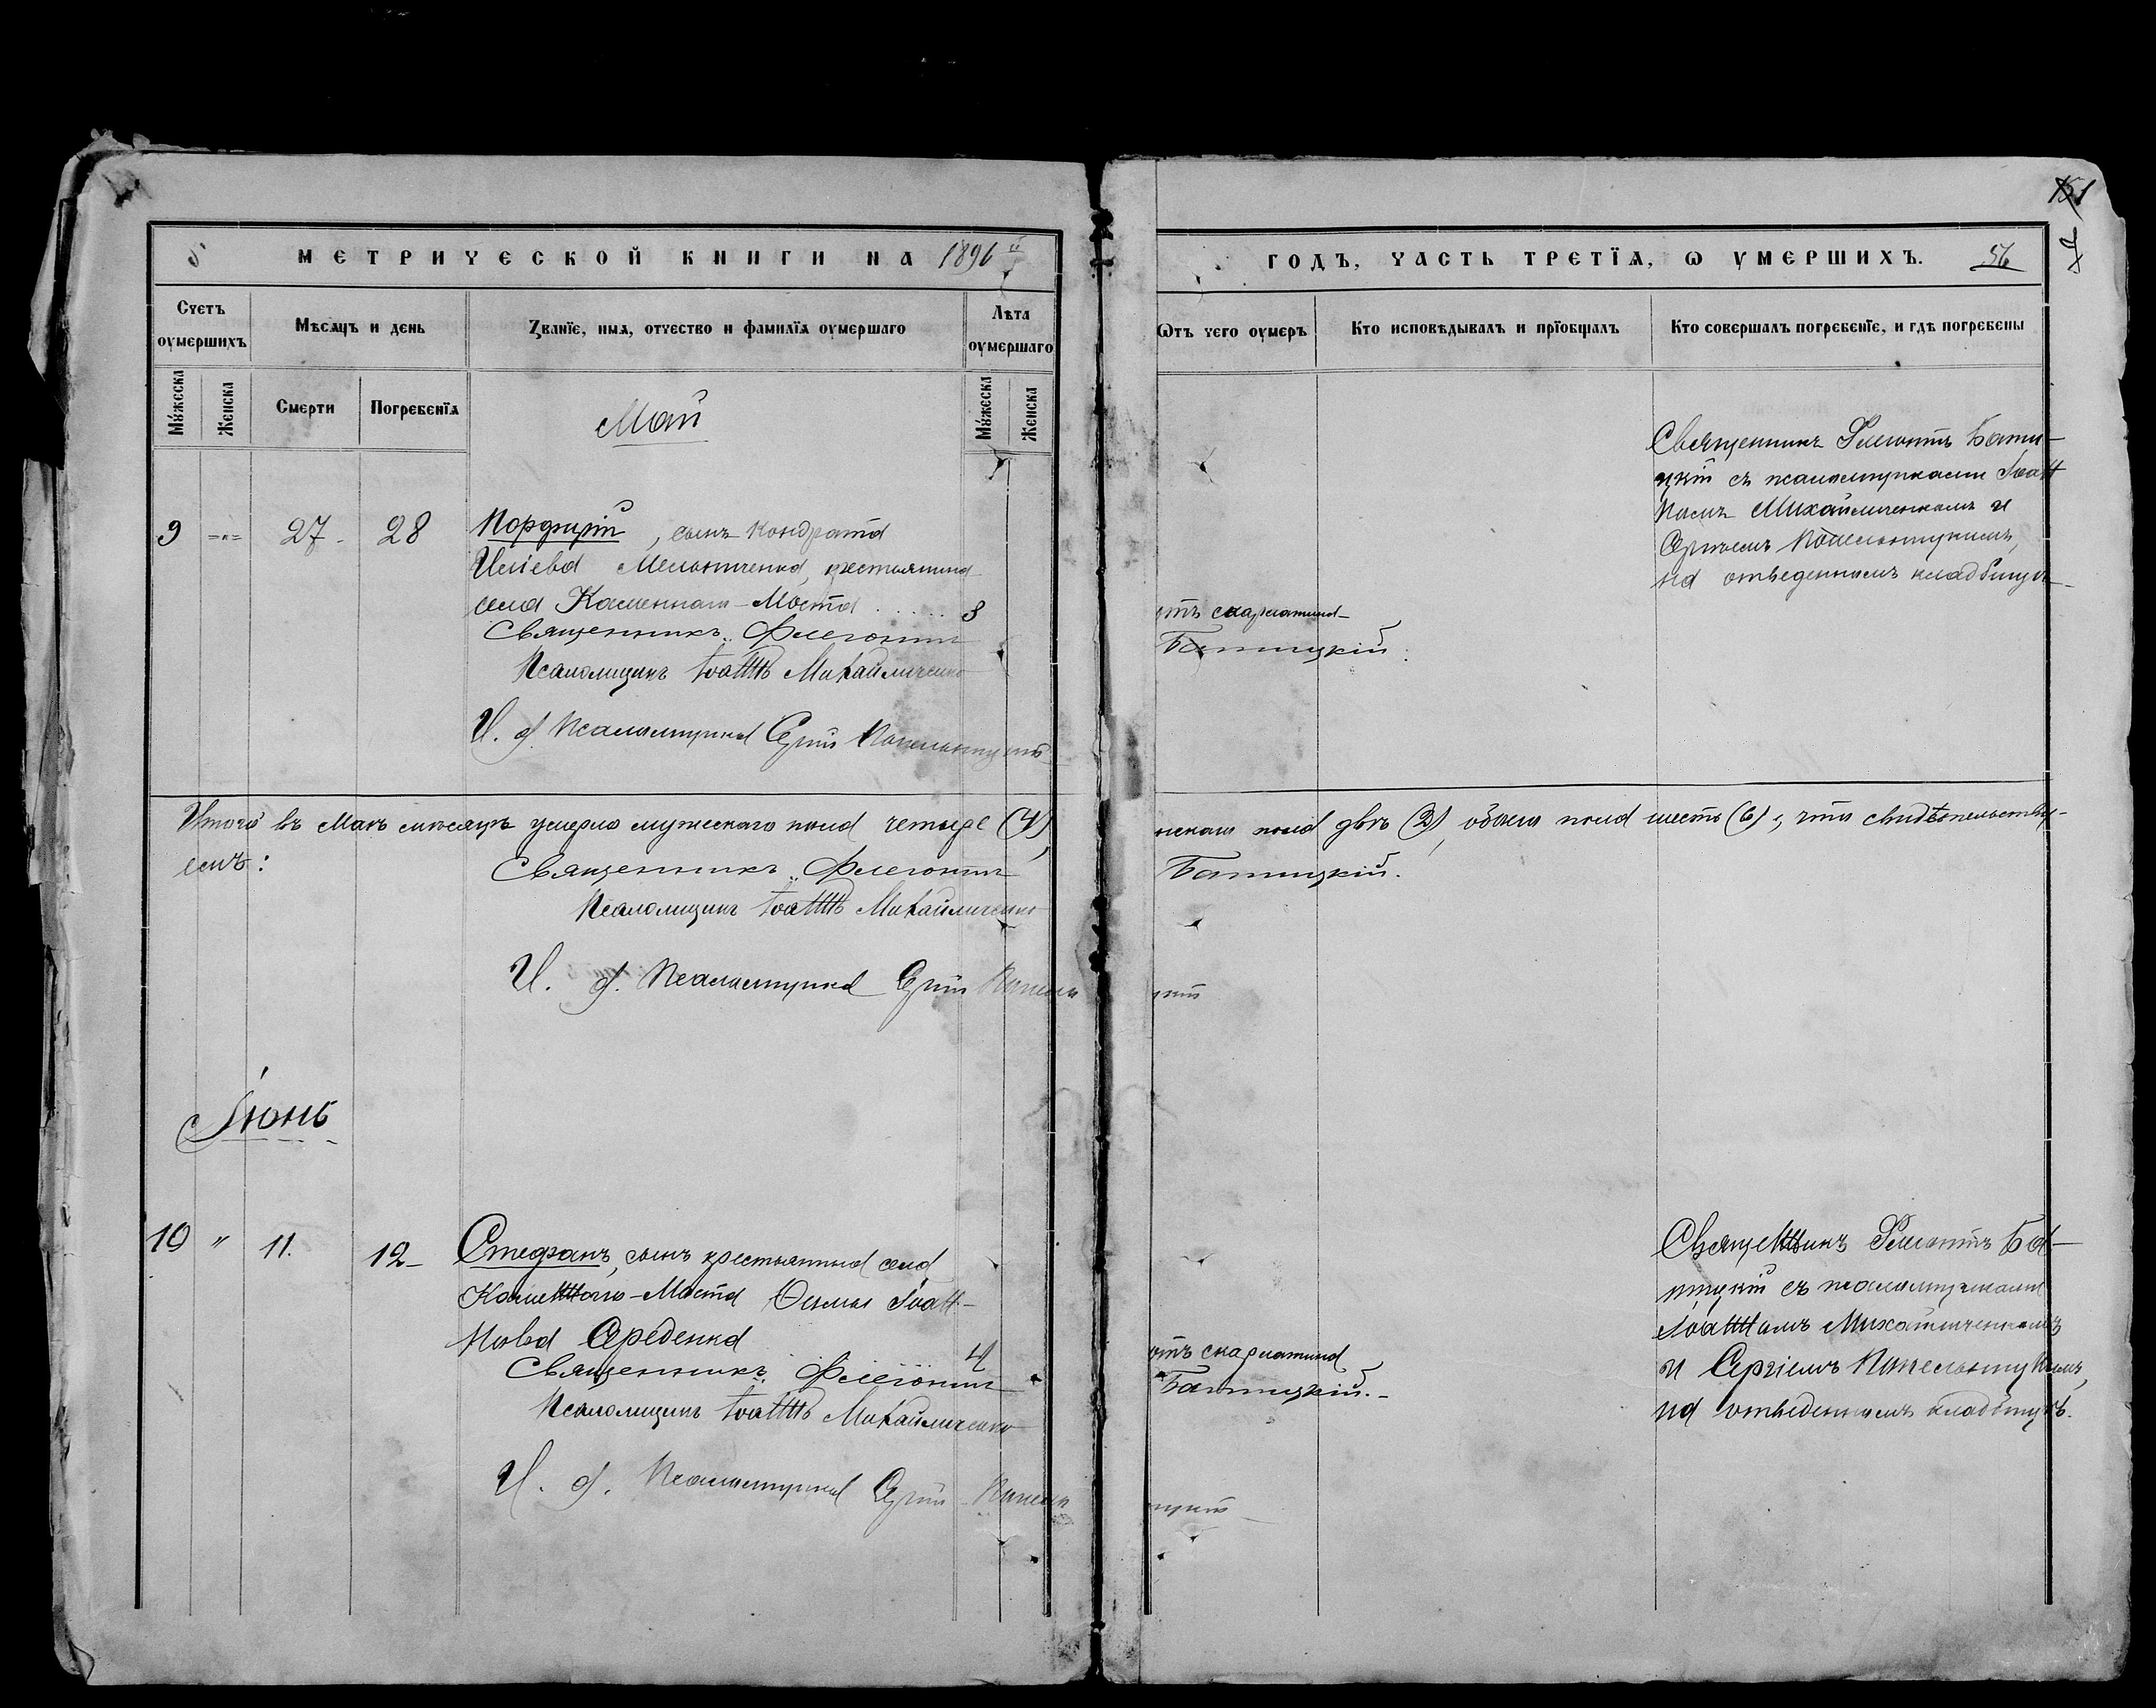 МЕТРИЧЕСКОЙ КНИГИ НА 1896 й
ГОДЪ, ЧАСТЬ ТРЕТЇѦ, Ѡ УМЕРШИХЪ. 56
151
Счетъ оумершихъ
Мѣсѧцъ и день
Званїе, имѧ, отчество и фамилїѧ оумершаго
Лѣта оумершаго
Ѿтъ чего оумеръ
Кто исповѣдывалъ и прїобщалъ
Кто совершалъ погребенїе, и гдѣ погребены
Мꙋжеска
Женска
Смерти
Погребенїѧ
Мꙋжеска
Женска
Май
9 27 28 Порфирій, сынъ Кондрата
Иліева Мельниченка, крестьянина
села Каменнаго-Моста 8
отъ скарлатины
Священникъ Флегонтъ Бати-
цкій съ псаломщиками Іоан-
номъ Михайличенкомъ и
Сергіемъ
на отведенномъ кладбищѣ
Священникъ Флегонтъ Батицкій.
Псаломщикъ Іоаннъ Михайличенко
И. д. Псаломщика Сергій
Итого въ Маѣ мѣсяцѣ умерло мужескаго пола четыре (4), женскаго пола двѣ (2), обоего пола шесть (6), что свидѣтельству-
емъ:
Священникъ Флегонтъ Батицкій.
Псаломщикъ Іоаннъ Михайличенко
И. д. Псаломщика Сергій
Іюнь
10 " 11. 12 Стефанъ, сынъ крестьянина села
Каменного-Моста Ѳомы Іоан-
нова Середенка 4
отъ скарлатины
Священникъ Флегонтъ Ба-
тицкій съ псаломщиками
Іоанномъ Михайличенкомъ
и Сергіемъ
на отведенномъ кладбищѣ.
Священникъ Флегонтъ Батицкій.
Псаломщикъ Іоаннъ Михайличенко
И. д. Псаломщика Сергій